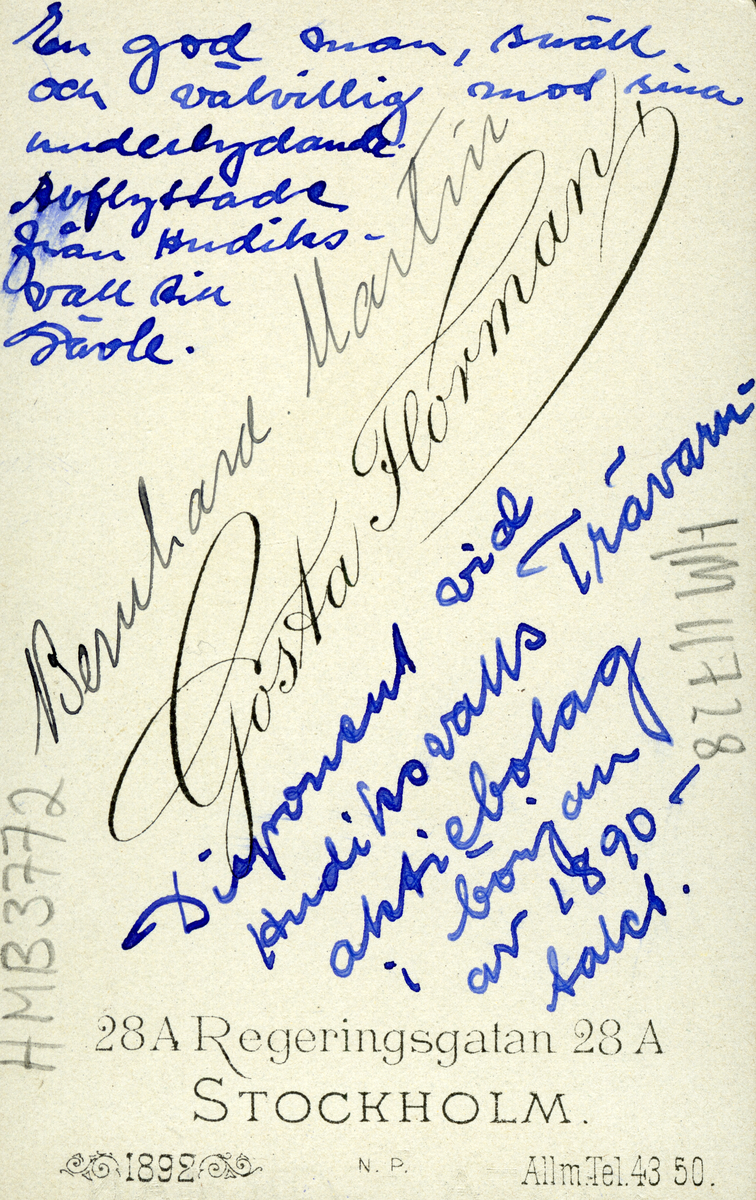 En god man, snäll
och välvillig mod sina
underlydande.
Avflyttade
från Hudiks-
vall till
Gävle.
Bernhard Martin
Gösta Florman
Disponent vid
Hudiksvalls Trävaru-
aktiebolag
i början
av 1890-
talet.
HM 11728
HMB3772
28A Regeringsgatan 28A
STOCKHOLM.
1892
N. P.
Allm.Tel.43 50.